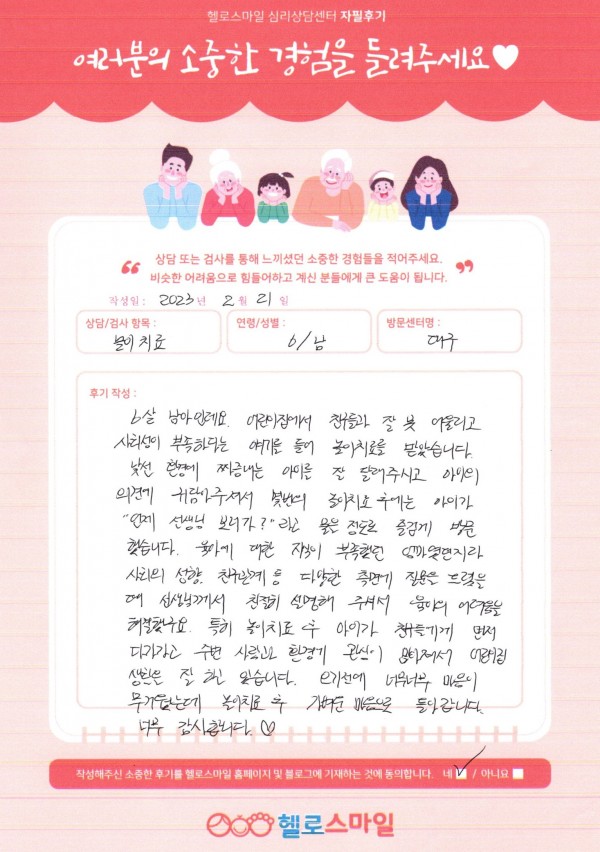 헬로스마일 심리상담센터 자필후기
여러분의 소중한 경험을 들려주세요♥
“ 상담 또는 검사를 통해 느끼셨던 소중한 경험들을 적어주세요.
비슷한 어려움으로 힘들어하고 계신 분들에게 큰 도움이 됩니다. ”
작성일 : 2023년 2월 21일
상담/검사 항목 : 놀이치료
연령/성별 : 6/남
방문센터명 : 대구
후기 작성 :
6살 남아인데요. 어린이집에서 친구들과 잘 못 어울리고
사회성이 부족하다는 얘기를 들어 놀이치료를 받았습니다.
낯선 환경에 찌증내는 아이를 잘 달래주시고 아이의
의견에 귀담아주셔서 몇번의 놀이치료 후에는 아이가
"언제 선생님 보러가?" 라고 물을 정도로 즐겁게 방문
했습니다. 육아에 대한 지식이 부족했던 엄마였던지라
사회의 성향, 친구관계 등 다양한 측면에 질문을 드렸을
때 선생님께서 친절히 설명해 주셔서 육아의 어려움을
해결했구요. 특히 놀이치료 후 아이가 친구들에게 먼저
다가가고 주변 사람들과 환경에 관심이 많아져서 어린이집
생활은 잘 하고 있습니다. 오기전에 너무너무 마음이
무거웠는데 놀이치료 후 가벼운 마음으로 돌아갑니다.
너무 감사합니다. ♡
작성해주신 소중한 후기를 헬로스마일 홈페이지 및 블로그에 기재하는 것에 동의합니다. 네 ✓ / 아니요
헬로스마일